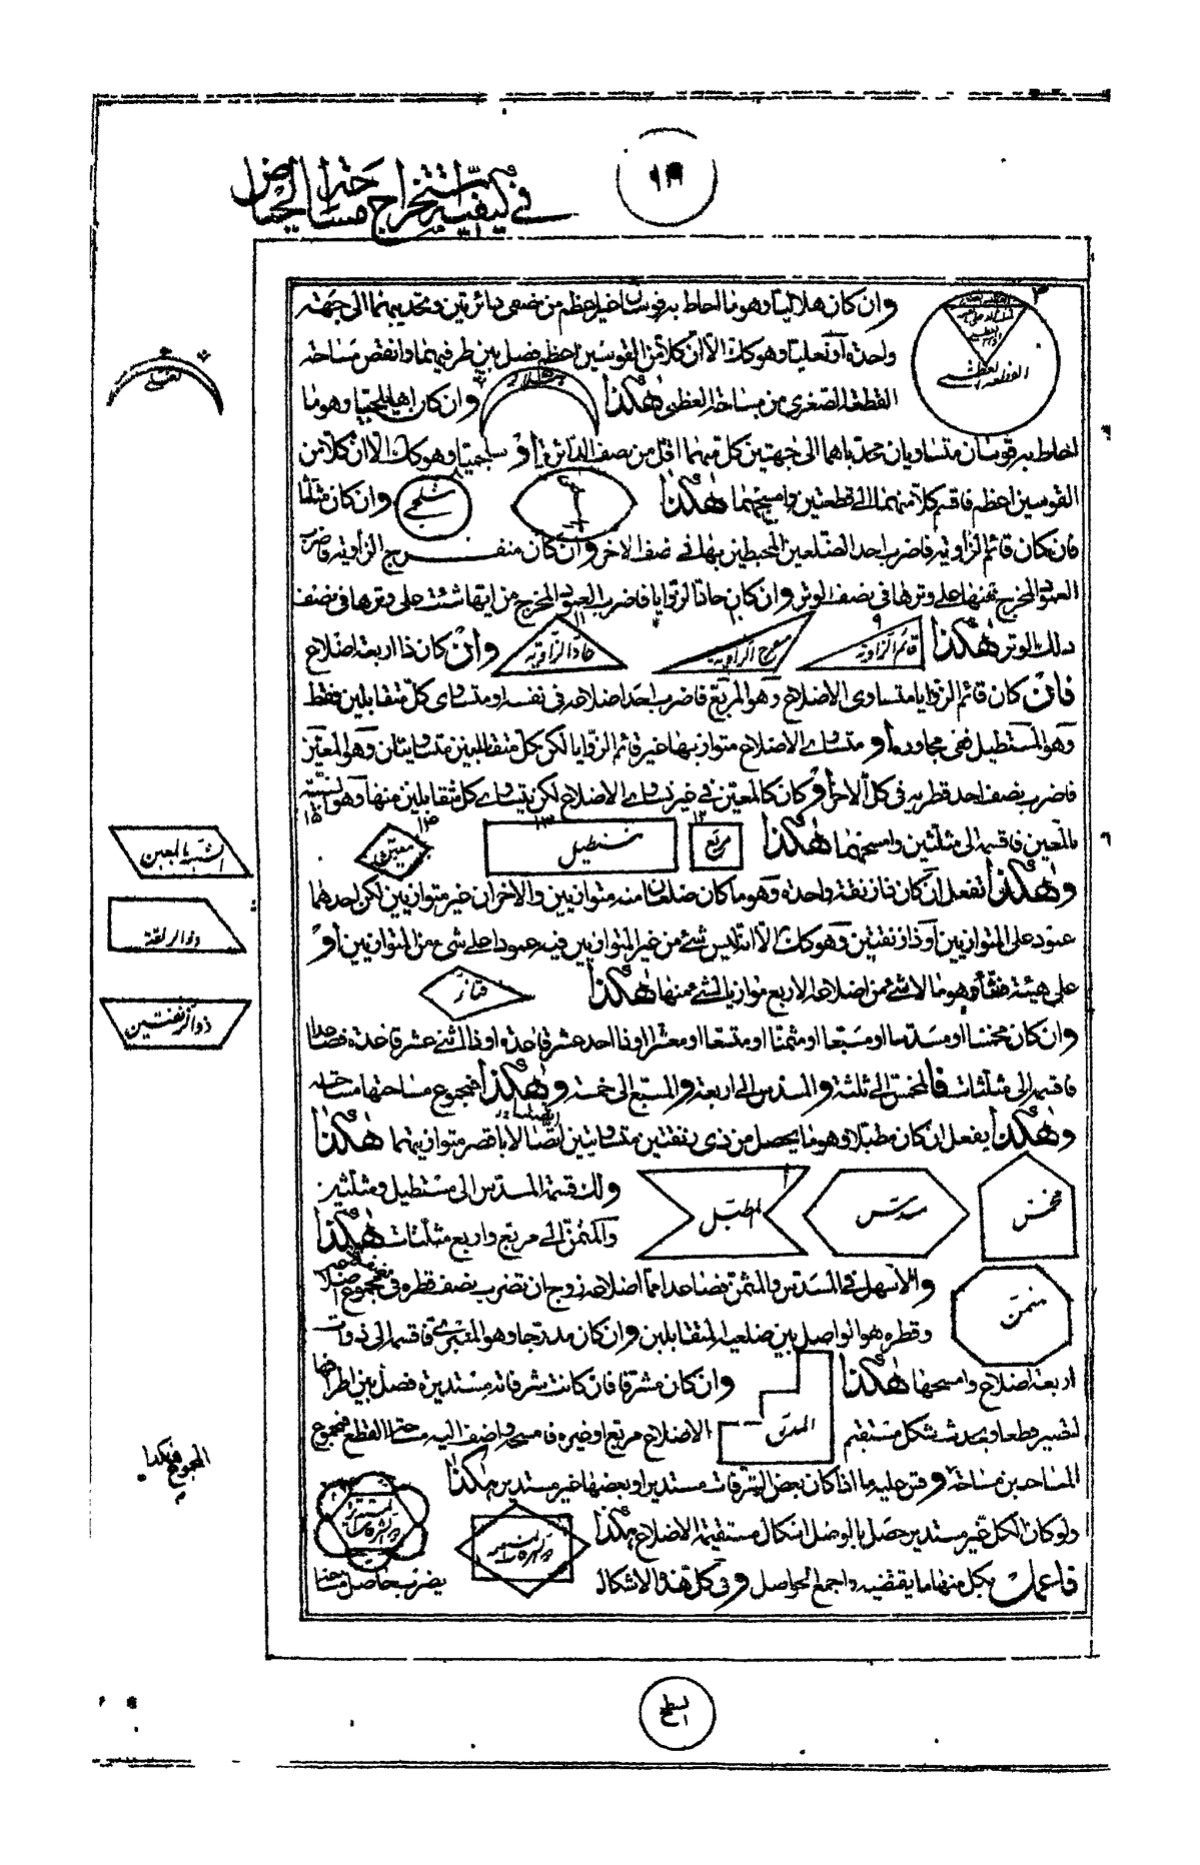 في كيفية استخراج مساحة الحياض
وان كان هلاليا وهو ما احاط به قوسان غير اعظم من نصفي دائرتين وتحديبهما الى جهة
واحدة او نعليا وهو كذلك الا ان كلا من القوسين اعظم فصل بين طرفيهما وانقص مساحة
القطعة الصغرى من مساحة العظمى هكذا وان كان اهليلجيا وهو ما
احاط به قوسان متساويان تحدباهما الى جهتين كل منهما اقل من نصف الدائرة او شلجميا وهو كذلك الا ان كلا من
القوسين اعظم فاقسم كلا منهما الى قطعتين وامسحهما هكذا وان كان مثلثا
فان كان قائم الزاوية فاضرب احد الضلعين المحيطين بها في نصف الاخر وان كان منفرج الزاوية فاضرب
العمود المخرج منها على وترها في نصف الوتر وان كان حاد الزوايا فاضرب العمود المخرج من ايتها شئت على وترها في نصف
ذلك الوتر هكذا وان كان ذا اربعة اضلاع
قائم الزاوية
منفرج الزاوية
حاد الزاوية
فان كان قائم الزوايا متساوى الاضلاع وهو المربع فاضرب احد اضلاعه في نفسه او متساوى كل متقابلين فقط
وهو المستطيل ففي مجاوره او متساوي الاضلاع متوازيها غير قائم الزوايا لكن كل متقابلين متساويتان وهو المعين
فاضرب نصف احد قطريه في كل الاخر او كان كالمعين في غير تساوي الاضلاع لكن يتساوى كل متقابلين منها وهو الشبيه
بالمعين فاقسمه الى مثلثين وامسحهما هكذا
مربع
مستطيل
معين
الشبيه بالمعين
وهكذا تفعل ان كان ذا زنقة واحدة وهو ما كان ضلعان منه متوازيين والاخران غير متوازيين لكن احدهما
عمود على المتوازيين او ذا زنقتين وهو كذلك الا انه ليس شئ من غير المتوازيين فيه عمودا على شئ من المتوازيين او
على هيئة قثاء وهو ما لا شئ من اضلاعه الاربع موازيا لشئ منها هكذا
ذو الزنقة
ذو الزنقتين
وان كان مخمسا او مسدسا او مسبعا او مثمنا او متسعا او معشرا او ذا احد عشر قاعدة او ذا اثنى عشر قاعدة فصاعدا
فاقسمه الى مثلثات فالمخمس الى ثلثة والمسدس الى اربعة والمسبع الى خمسة وهكذا فمجموع مساحتها مساحته
وهكذا يفعل ان كان مطبلا وهو ما يحصل من ذي زنقتين متساويتين اتصلا باقصر متوازيتهما هكذا
مخمس
مسدس
المطبل
ولك قسمة المسدس الى مستطيل ومثلثين
والمثمن الى مربع واربع مثلثات هكذا
مثمن
والاسهل في المسدس والمثمن فصاعدا مما اضلاعه زوج ان تضرب نصف قطره في نصف مجموع اضلاعه
وقطره هو الواصل بين ضلعيه المتقابلين وان كان مدرجا وهو المنبري فاقسمه الى ذوات
اربعة اضلاع وامسحها هكذا وان كان مشرفا فان كانت شرفاته مستديرة فصل بين اطرافها
المدرج
لتصير قطعا ويحدث شكل مستقيم الاضلاع مربع او غيره فامسحه واضف اليه مساحة القطع فمجموع
المساحتين مساحته وقس عليه ما اذا كان بعض الشرفات مستديرا وبعضها غير مستدير هكذا
ولو كان الكل غير مستدير حصل بالوصل اشكال مستقيمة الاضلاع هكذا
فاعمل بكل منها ما يقتضيه واجمع الحواصل وفي كل هذه الاشكال يضرب حاصل مساحة
السطح